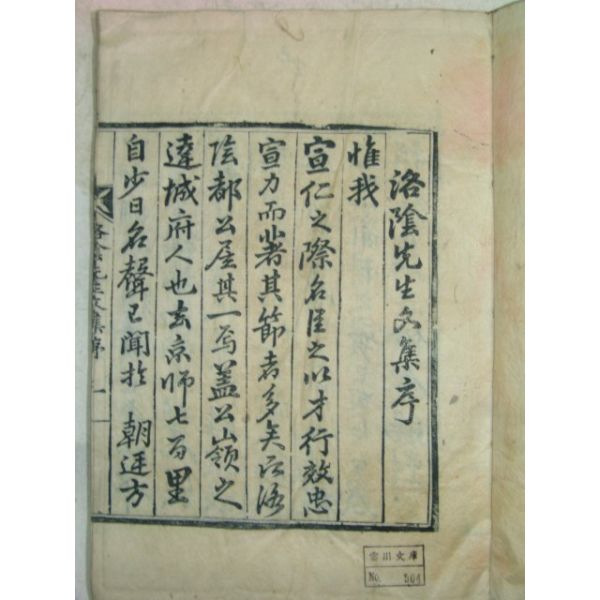 洛陰先生文集序
惟我
宣仁之際名臣之以才行效忠
宣力而著其節者多矣洛
陰都公居其一焉盖公嶺之
達城府人也去京師七百里
自少日名聲已聞於 朝廷方
洛陰先生文集序 一
雲川文庫
No.